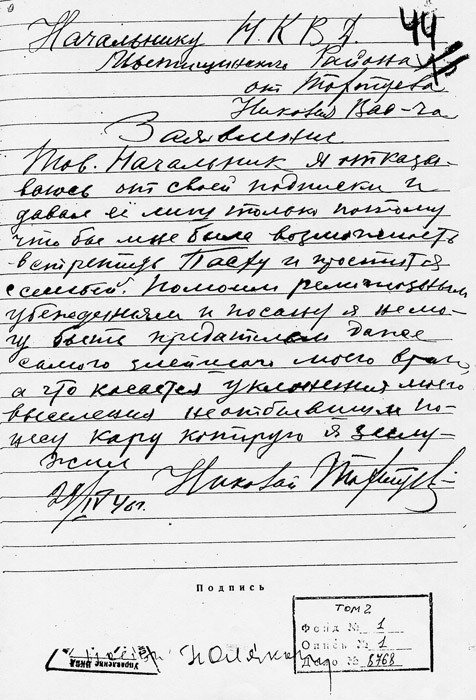 44
Начальнику Н.К.В.Д.
Мытищинского Района
от Тортуева
Николая Вас-ча
Заявление
Тов. Начальник я отказы-
ваюсь от своей подписки и
давал её лишь только потому
что бы мне была возможность
встретить Пасху и проститься
с семьей. По моим религиозным
убеждениям и по сану я не мо-
гу быть предателем даже
самого злейшего моего врага
а что касается уклонения моего
выселения
кару которую я заслу-
жил
21/IV 40г. Николай Тортуев
Подпись
ТОМ 2
Фонд № 1
Опись № 1
Дело № 8768
Управление НКВД